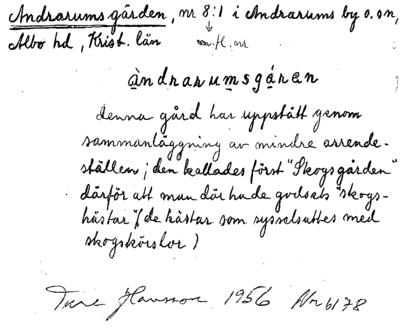 Andrarumsgården, nr 8:1 i Andrarums by o. sn,
Albo hd, Krist. län
m. fl. nr
àndrarumsgáŕen
denna gård har uppstått genom
sammanläggning av mindre arrende-
ställen; den kallades först "Skogsgården"
därför att man där hade godsets "skogs-
hästar" (de hästar som sysselsattes med
skogskörslor)
Ture Hansson 1956 Nr 6178